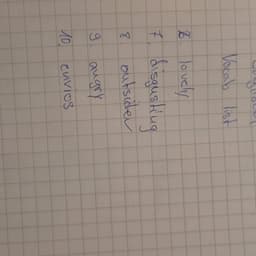 Vocab list
6 lonely
7. disgusting
8 outsider
9. angry
10. envios